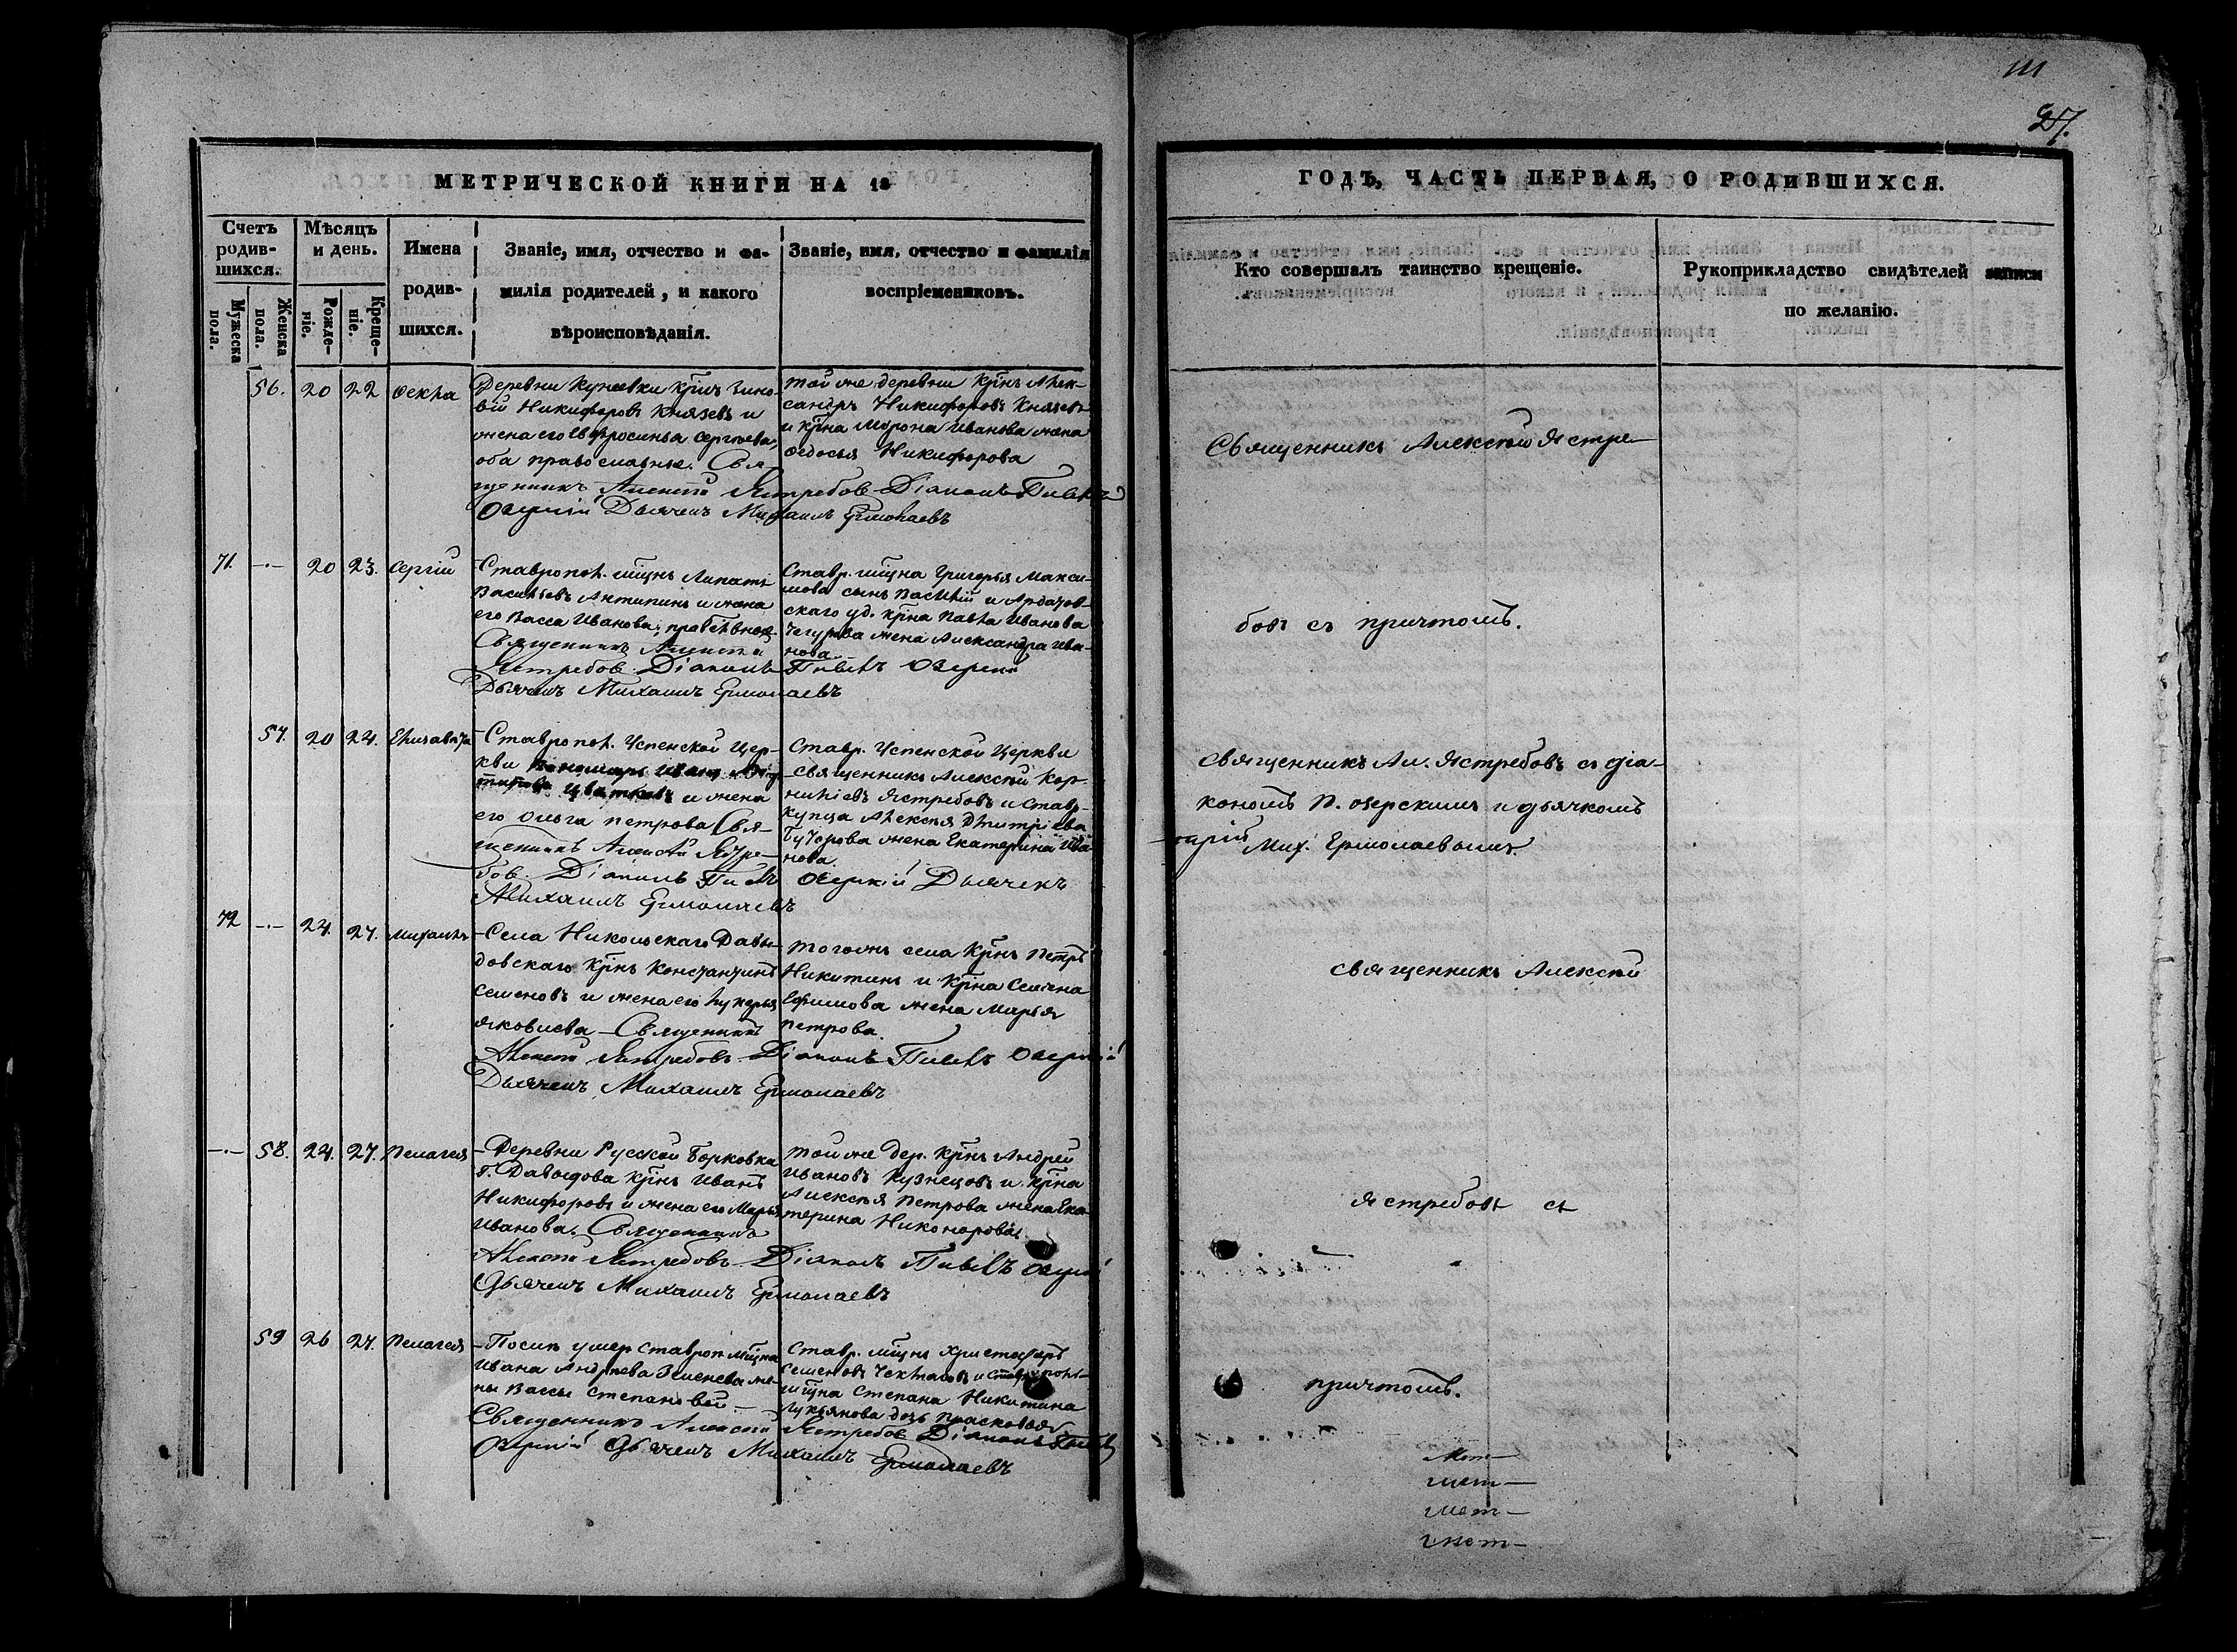 111
27.
МЕТРИЧЕСКОЙ КНИГИ НА 18
Счетъ родив-шихся.
Мѣсяцъ и день.
Имена родив-шихся.
Званіе, имя, отчество и фа-
милія родителей, и какого
вѣроисповѣданія.
Званіе, имя, отчество и фамилія
воспріемниковъ.
Мужеска пола.
Женска пола.
Рожде-ніе.
Креще-ніе.
56. 20 22 Фекла
Деревни Кунеевки Крнъ Зино-
вій Никифоровъ Князевъ и
жена его Евфросинья Сергѣева,
оба православные. Свя-
щенникъ Алексій Ястребовъ Діаконъ Павелъ
Озерскій Дьячекъ Михаилъ Ермолаевъ
той же деревни Крнъ Алек-
сандръ Никифоровъ Князевъ
и крна Иванова жена
Федосья Никифорова
71. -·- 20 23. Сергій
Ставропол. мщнъ Липатъ
Васильевъ Антипинъ и жена
его Васса Иванова; православные
Священникъ Алексій
Ястребовъ Діаконъ Павелъ Озерскій
Дьячекъ Михаилъ Ермолаевъ
Ставр. мщна Григорья Макси-
мова сынъ Василій и Ардатов-
скаго уд. крна Павла Иванова
жена Александра Ива-
нова
57. 20 24. Елизавета
Ставропол. Успенской Цер-
кви
и жена
его Ольга Петрова Свя-
щенникъ Алексій Ястре-
бовъ. Діаконъ Павелъ Озерскій Дьячекъ
Михаилъ Ермолаевъ
Ставр. Успенской Церкви
священникъ Алексій Кор-
ниліевъ Ястребовъ и Ставр.
купца Алексѣя Дмитріева
жена Екатерина Ива-
нова.
72 -·- 24. 27. Михаилъ
Села Никольскаго Давы-
довскаго Крнъ Константинъ
Семеновъ и жена его Лукерья
Яковлева Священникъ
Алексій Ястребовъ Діаконъ Павелъ Озерскій
Дьячекъ Михаилъ Ермолаевъ
тогожъ села Крнъ Петръ
Никитинъ и Крна Семена
Ефимова жена Марья
Петрова.
-·- 58. 24. 27. Пелагея
Деревни Русской Борковки
г. Давыдова Крнъ Иванъ
Никифоровъ и жена его Марья
Иванова. Священникъ
Алексій Ястребовъ Діаконъ Павелъ Озерскій
Дьячекъ Михаилъ Ермолаевъ
той же дер. Крнъ Андрей
Ивановъ Кузнецовъ и Крна
Алексѣя Петрова жена Ека-
терина Никонорова.
59 26 27. Пелагея
Послѣ умер. Ставроп. мщна
Ивана Андреева же-
ны Вассы Степановой
Священникъ Алексій Ястребовъ Діаконъ Павелъ
Озерскій Дьячекъ Михаилъ Ермолаевъ
Ставр. мщнъ Христофоръ
Семеновъ и Ставропол.
мщна Степана Никитина
Лукьянова дочь Прасковья
ГОДЪ, ЧАСТЬ ПЕРВАЯ, О РОДИВШИХСЯ.
Кто совершалъ таинство крещеніе.
Рукоприкладство свидѣтелей записи
по желанію.
Священникъ Алексѣй Ястре-
бовъ съ причтомъ.
священникъ Ал. Ястребовъ съ діа-
кономъ П. Озерскимъ и дьячкомъ
Мих. Ермолаевымъ.
священникъ Алексѣй
Ястребовъ съ
причтомъ.